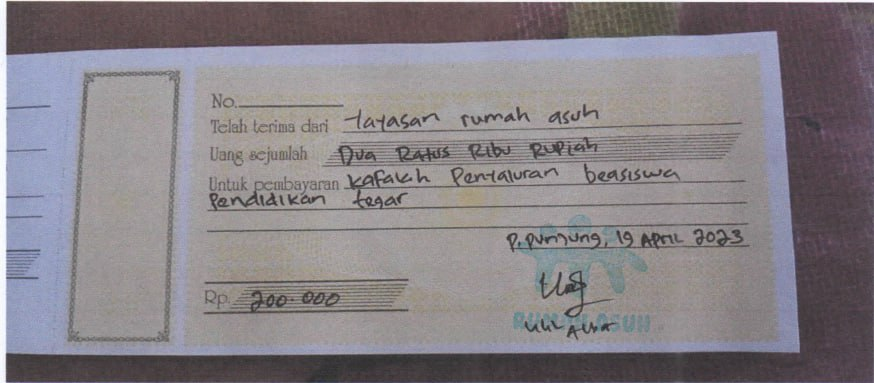 No.
Telah terima dari Yayasan rumah asuh
Uang sejumlah Dua Ratus Ribu Rupiah
Untuk pembayaran Kafalah Penyaluran beasiswa
Pendidikan tegar
P. Punjung, 19 April 2023
Rp. 200.000
RUMAH ASUH